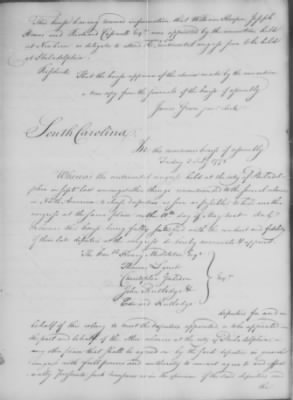 This house having received information that William Hooper Joseph
Hewes and Richard Caswell Esqrs were appointed by the convention held
at New bern as delegates to attend the continental congress soon to be held
at Philadelphia.
Resolved
That the house approve of the choice made by the convention
a true copy from the journals of the house of assembly
James Green junr clerk
South Carolina.
In the commons house of assembly
Friday 3 Feby 1775
Whereas the continental congress held at the city of Philadel-
phia in Septr last amongst other things recommended to the several colonies
in North America to chuse deputies as soon as possible to hold another
congress at the same place on the 10th day of May next And
whereas this house being fully satisfied with the conduct and fidelity
of their late deputies at the congress do hereby nominate & appoint
The honble Henry Middleton Esqr
Thomas Lynch
Christopher Gadsden
John Rutledge &
Edward Rutledge
Esqrs
deputies for and on
behalf of this colony to meet the deputies appointed or to be appointed on
the part and behalf of the other colonies at the city of Philadelphia or
any other place that shall be agreed on by the said deputies in general
congress with full power and authority to concert agree to and effect-
ually prosecute such measures as in the opinion of the said deputies and
the